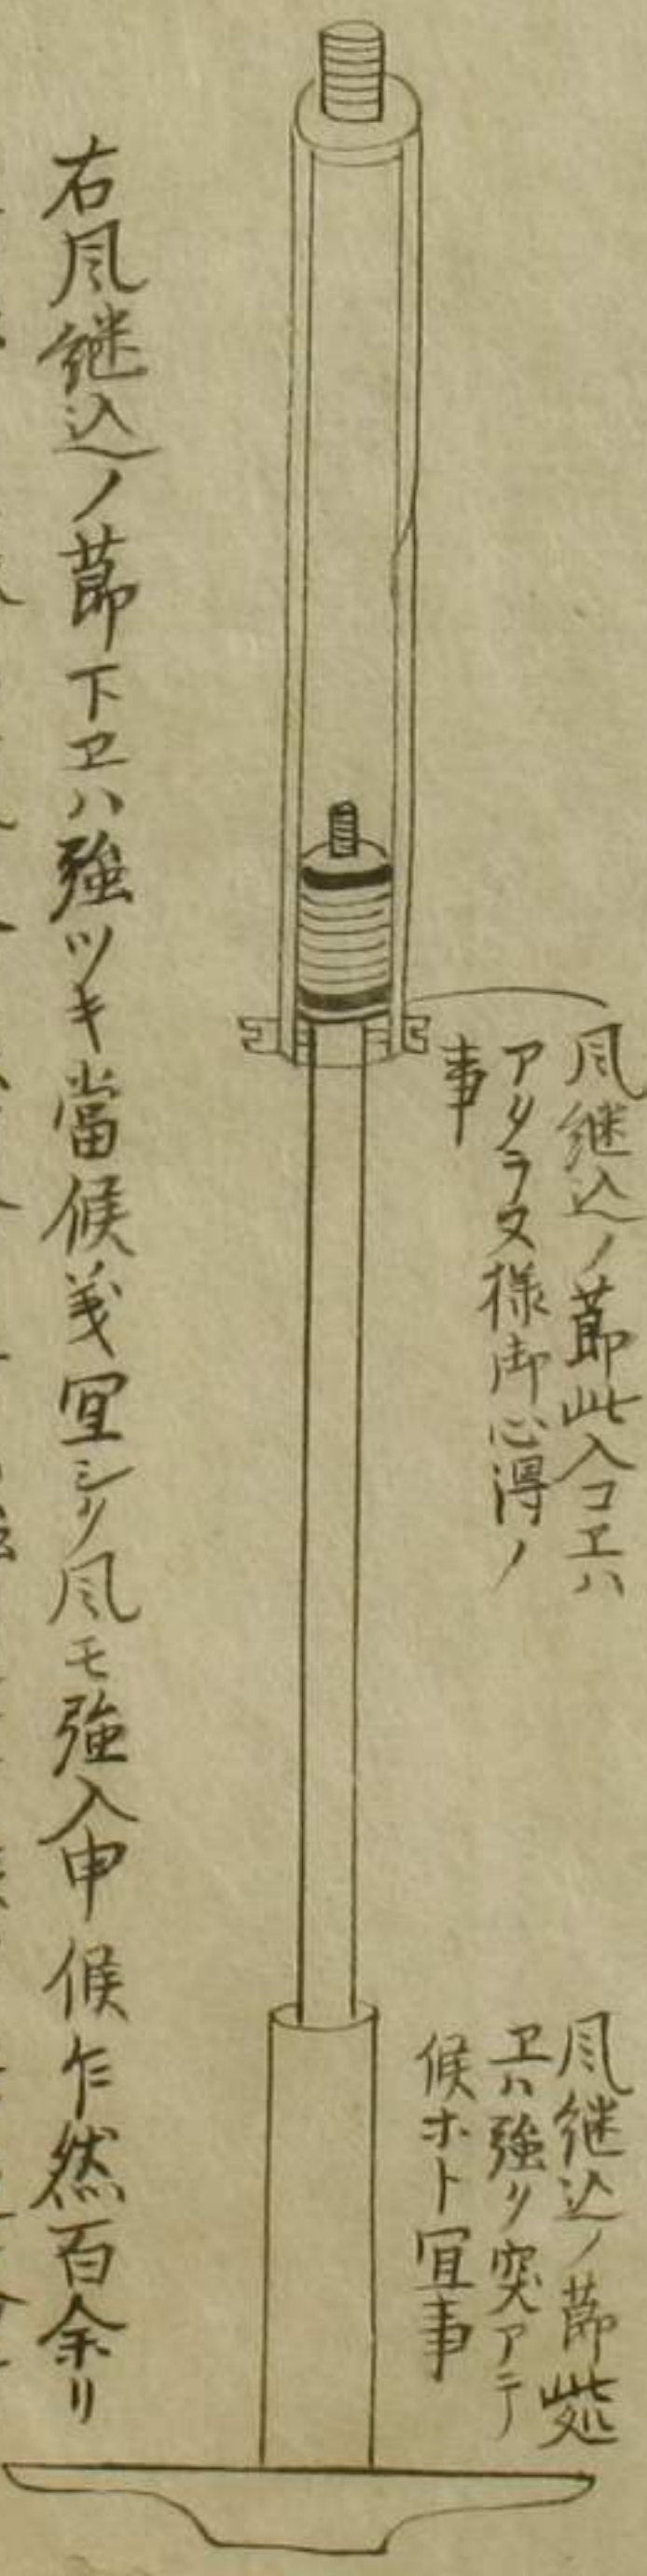 風継込ノ節此入コエハ
アタラヌ様御心得ノ
事
風継込ノ節此処
ヱハ強ク突アテ
候ホト宜事
右風継込ノ節下ヱハ強ツキ當候義宜シク風モ強入申候乍然百余リ